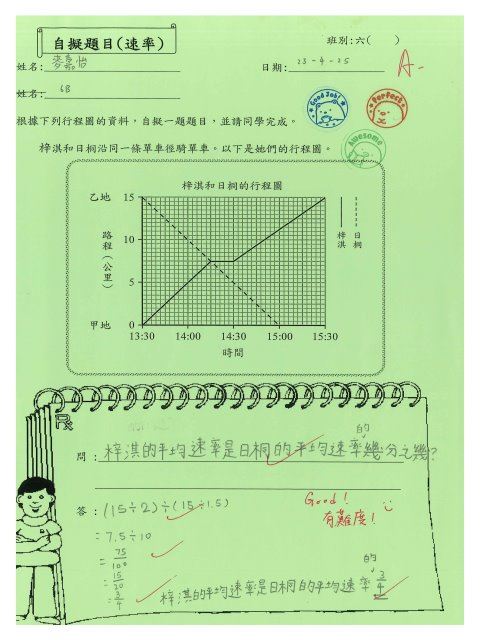 自擬題目(速率)
班別:六(　)
姓名: 麥嘉怡
日期: 23-4-25
A-
姓名: 6B
Good Job!
Perfect
根據下列行程圖的資料，自擬一題題目，並請同學完成。
Awesome
梓淇和日桐沿同一條單車徑騎單車。以下是她們的行程圖。
梓淇和日桐的行程圖
乙地 15
10
5
甲地 0
路程(公里)
13:30 14:00 14:30 15:00 15:30
時間
梓淇
日桐
問: 梓淇的平均速率是日桐的平均速率的幾分之幾?
答: (15÷2)÷(15÷1.5)
Good!
有難度!
=7.5÷10
=75/100
=15/20
=3/4
梓淇的平均速率是日桐的平均速率的3/4